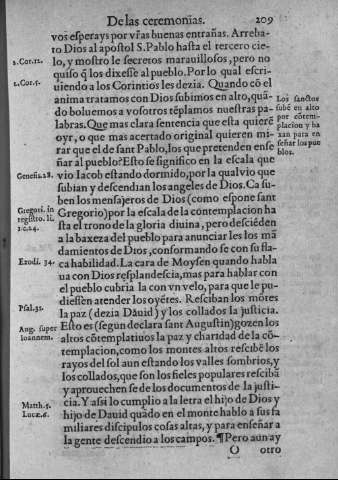 De las ceremonias. 209
vos esperays por vr̃as buenas entrañas. Arreba-
to Dios al apostol S. Pablo hasta el tercero cie-
2. Cor. 12.
lo, y mostro le secretos marauillosos, pero no
quiso q̃ los dixesse al pueblo. Por lo qual escri-
2. Cor. 5.
uiendo a los Corintios les dezia. Quando cõ el
anima tratamos con Dios subimos en alto, quã-
do boluemos a vosotros tẽplamos nuestras pa-
labras. Que mas clara sentencia que esta quierẽ
oyr, o que mas acertado original quieren mi-
rar que el de sant Pablo, los que pretenden ense-
ñar al pueblo? Esto se significo en la escala que
Los sanctos
subẽ en alto
por cõtem-
placion y ba
xan para en
señar los pue
blos.
Genesis. 28.
vio Iacob estando dormido, por la qual vio que
subian y descendian los angeles de Dios. Ca su-
ben los mensajeros de Dios (como espone sant
Gregori. in
registro. li.
1. c. 24.
Gregorio) por la escala de la contemplacion ha
sta el trono de la gloria diuina, pero desciẽden
a la baxeza del pueblo para anunciar les los mã
damientos de Dios, conformando se con su fla-
Exodi. 34.
ca habilidad. La cara de Moysen quando habla
ua con Dios resplandescia, mas para hablar con
el pueblo cubria la con vn velo, para que le pu-
diessen atender los oyẽtes. Resciban los mõtes
Psal. 71.
la paz (dezia Dauid) y los collados la justicia.
Aug. super
Ioannem.
Esto es (segun declara sant Augustin) gozen los
altos cõtemplatiuos la paz y charidad de la cõ-
templacion, como los montes altos rescibẽ los
rayos del sol aun estando los valles sombrios, y
los collados, que son los fieles populares rescibã
y aprouechen se de los documentos de la justi-
Matth. 5.
Lucæ. 6.
cia. Y assi lo cumplio a la letra el hijo de Dios y
hijo de Dauid quãdo en el monte hablo a sus fa
miliares discipulos cosas altas, y para enseñar a
la gente descendio a los campos. ¶ Pero aun ay
O otro